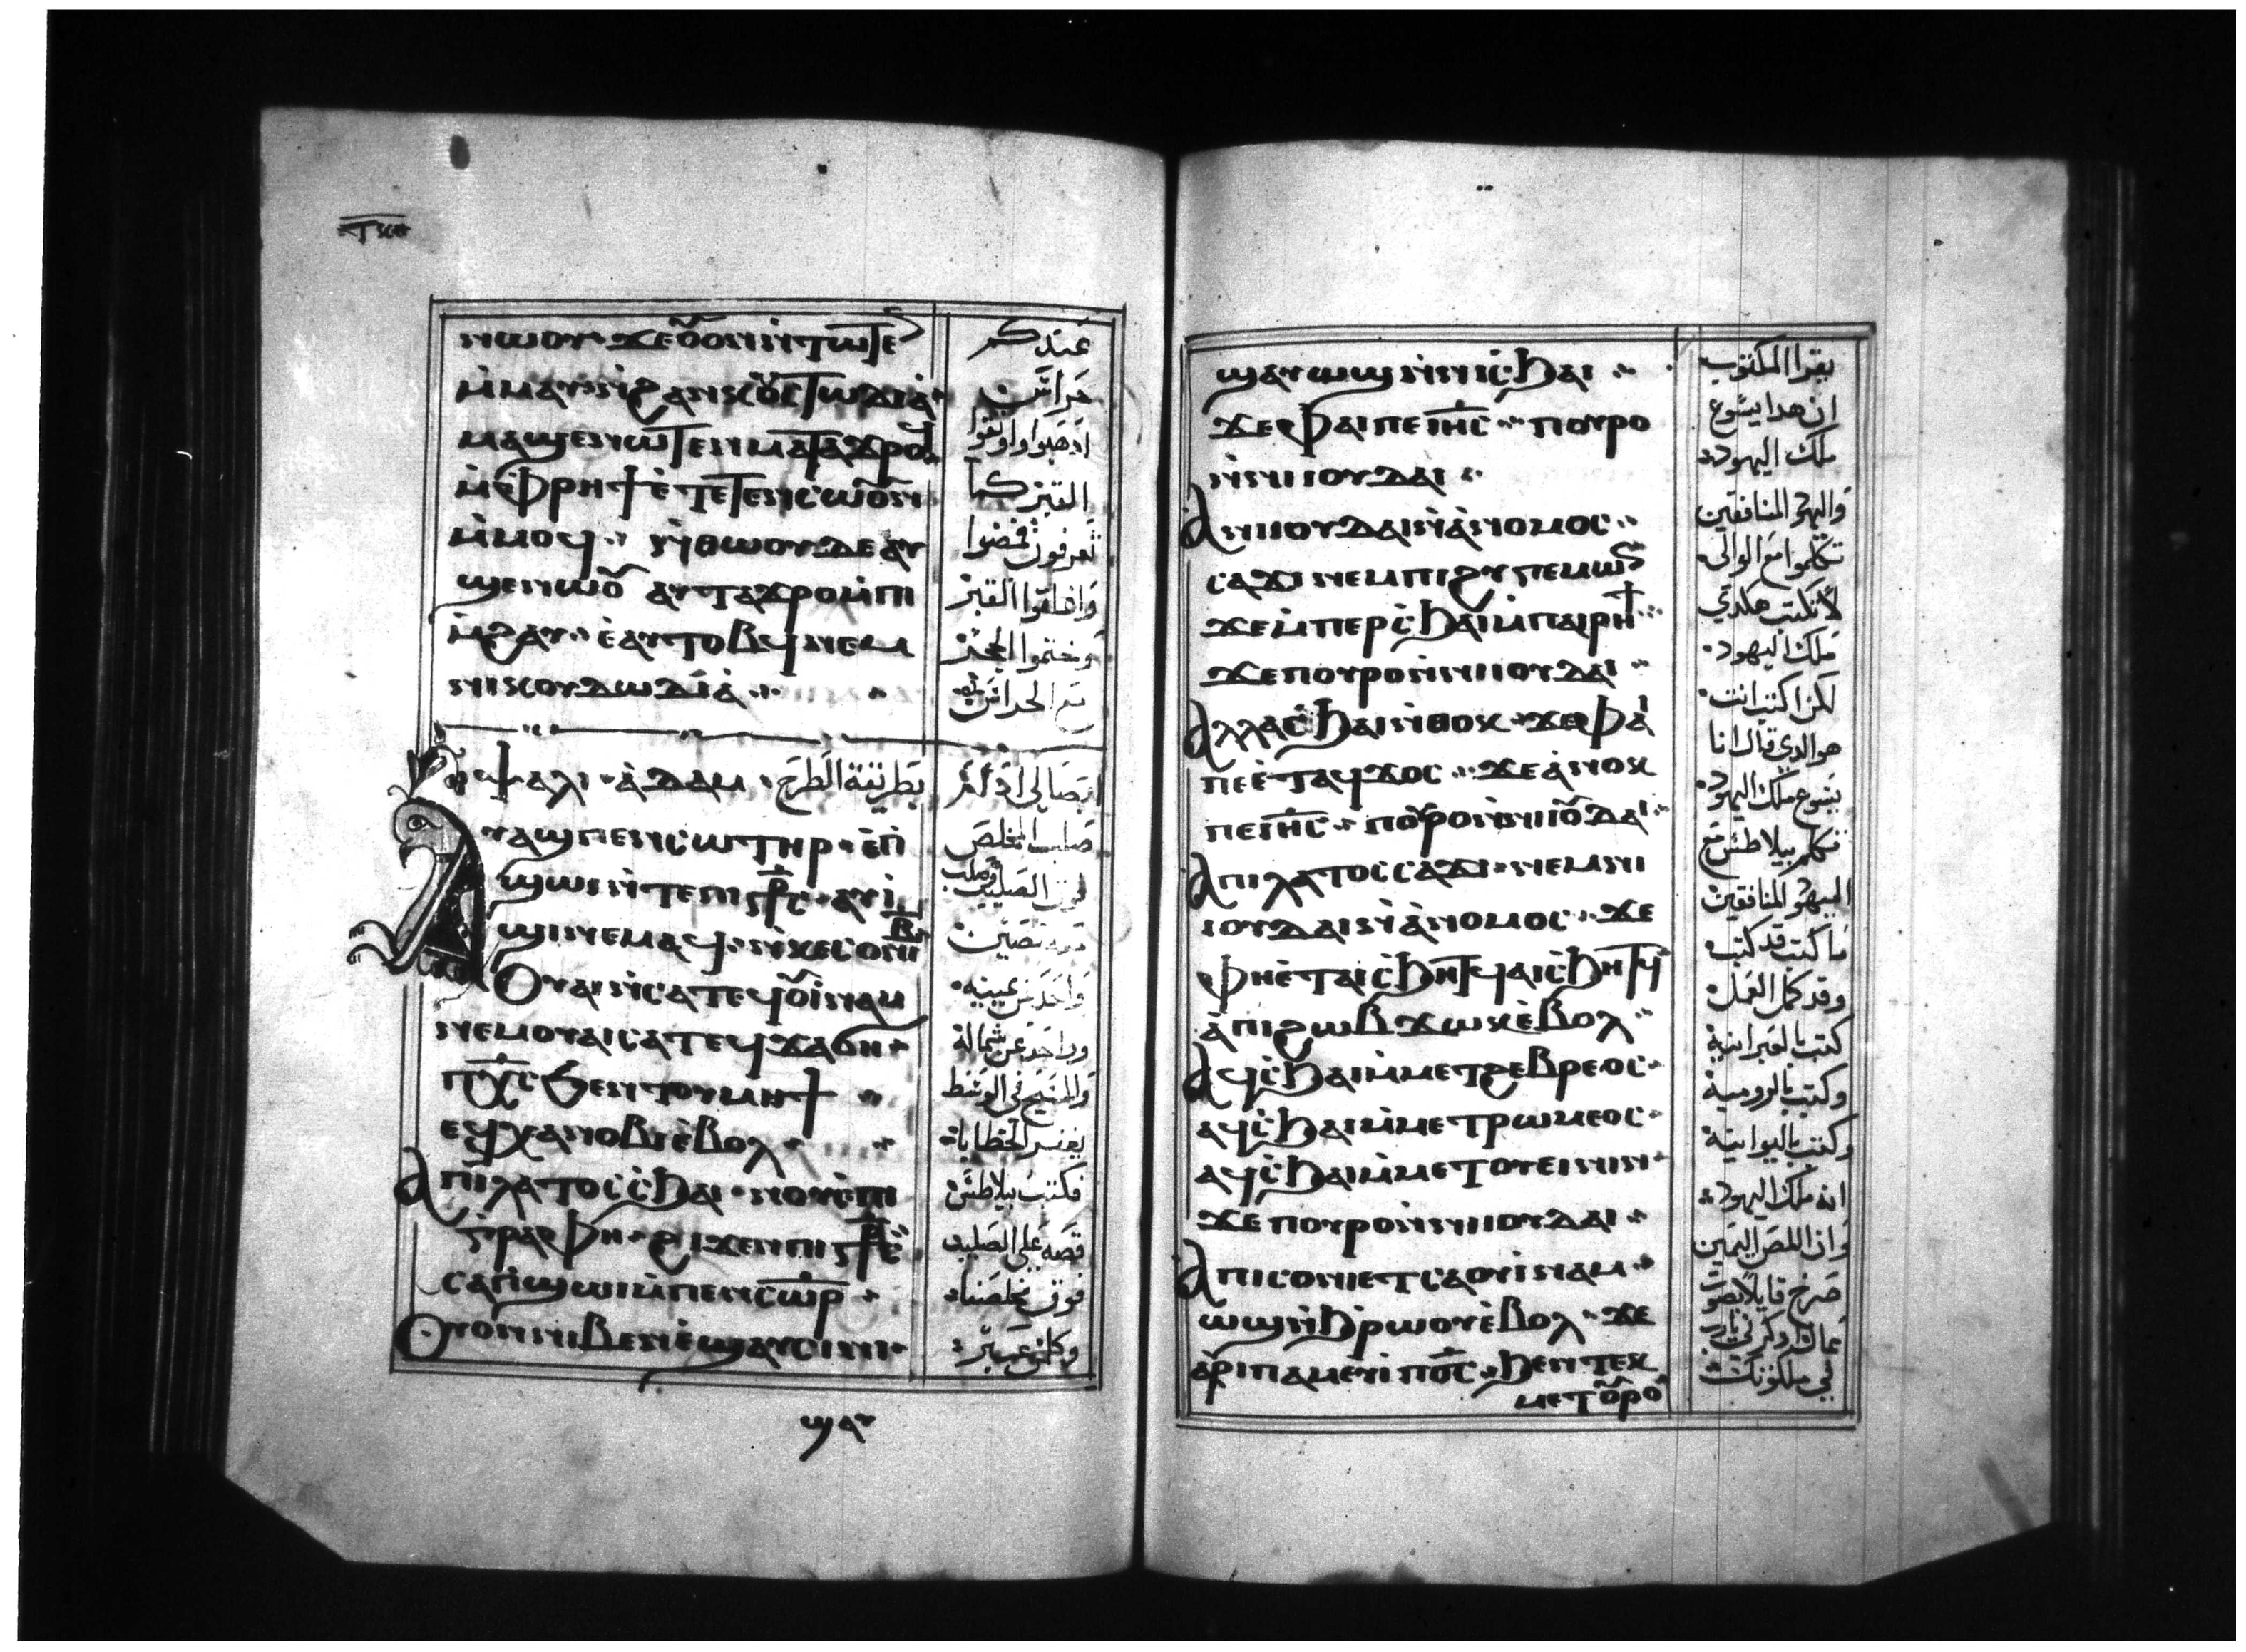 ⲧⲕⲑ
ⲛⲱⲟⲩ ϫⲉⲟⲩⲟⲛⲛ̀ⲧⲱⲧⲉ
ⲙ̀ⲙⲁⲩⲛ̀ϩⲁⲛⲕⲟⲩⲥⲧⲱⲇⲓⲁ̀
ⲙⲁϣⲉⲛⲱⲧⲉⲛⲙⲁⲧⲁϫⲣⲟϥ
ⲙ̀ⲫⲣⲏϯⲉ̀ⲧⲉⲧⲉⲛⲥⲱⲟⲩⲛ
ⲙ̀ⲙⲟϥ ⲛ̀ⲑⲱⲟⲩⲇⲉⲁⲩ
ϣⲉⲛⲱⲟⲩ ⲁⲩⲧⲁϫⲣⲟⲙ̀ⲡⲓ
ⲙ̀ϩⲁⲩ ⲉ̀ⲁⲩⲧⲟⲃϥⲛⲉⲙ
ⲛⲓⲕⲟⲩⲇⲱⲇⲓⲁ̀
عندكم
حراس
اذهبوا واوثقوا
القبر كما
تعرفون فمضوا
واغلقوا القبر
وختموا الحجر
مع الحراس
ⲯⲁⲗⲓ ⲁ̀ⲇⲁⲙ بطريقة الطرح
ⲁⲩⲁϣⲡⲉⲛⲥⲱⲧⲏⲣ ⲉ̀ⲡ̀
ϣⲱⲓⲛ̀ⲧⲉⲡⲓⲥ̅ⳁⲥ̅ ⲁⲩⲓ̀
ϣⲓⲛⲉⲙⲁϥ ⲛ̀ⲕⲉⲥⲟⲛⲓ ⲃ̅
ⲟⲩⲁⲓⲛⲥⲁⲧⲉϥⲟⲩⲓ̀ⲛⲁⲙ
ⲛⲉⲙⲟⲩⲁⲓⲥⲁⲧⲉϥϫⲁϭⲏ
ⲡⲭ̅ⲥ̅ ϧⲉⲛⲧⲟⲩⲙⲏϯ
ⲉϥⲭⲁⲛⲟⲃⲓⲉ̀ⲃⲟⲗ
ⲁⲡⲓⲗⲁⲧⲟⲥⲥ̀ϧⲁⲓ ⲛⲟⲩⲉ̀ⲡⲓ
ⲅ̀ⲣⲁⲫⲏ ϩⲓϫⲉⲛⲡⲓⲥ̅ⳁⲥ̅
ⲥⲁⲡ̀ϣⲱⲓⲙ̀ⲡⲉⲛⲥ̅ⲱ̅ⲣ̅
ⲟⲩⲟⲛⲛⲓⲃⲉⲛⲉ̀ϣⲁⲩⲥⲓⲛⲓ
ابصالي ادام
صلب المخلص
فوق الصليب وصلب
معه لصين
واحد عن يمينه
وواحد عن شماله
والمسيح في الوسط
يغفر الخطايا
فكتب بيلاطس
قصه على الصليب
فوق مخلصنا
وكلمن عبر
ϣⲁⲩ
ϣⲁⲩⲱϣⲛ̀ⲛⲓⲥ̀ϧⲁⲓ
ϫⲉⲫⲁⲓⲡⲉⲓⲏ̅ⲥ̅ ⲡⲟⲩⲣⲟ
ⲛ̀ⲛⲓⲓⲟⲩⲇⲁⲓ
ⲁⲛⲓⲟⲩⲇⲁⲓⲛ̀ⲁ̀ⲛⲟⲙⲟⲥ
ⲥⲁϫⲓⲛⲉⲙⲡⲓϩⲩⲅⲉⲙⲱⲛ
ϫⲉⲙ̀ⲡⲉⲣⲥ̀ϧⲁⲓⲙ̀ⲡⲁⲓⲣⲏϯ
ϫⲉⲡⲟⲩⲣⲟⲛ̀ⲛⲓⲓⲟⲩⲇⲁⲓ
ⲁⲗⲗⲁⲥ̀ϧⲁⲓⲛ̀ⲑⲟⲕ ϫⲉⲫⲁⲓ
ⲡⲉⲉ̀ⲧⲁϥϫⲟⲥ ϫⲉⲁ̀ⲛⲟⲕ
ⲡⲉⲓⲏ̅ⲥ̅ ⲡⲟⲩⲣⲟⲛ̀ⲛⲓⲓⲟⲩⲇⲁⲓ
ⲁⲡⲓⲗⲁⲧⲟⲥⲥⲁϫⲓ ⲛⲉⲙⲛⲓ
ⲓⲟⲩⲇⲁⲓⲛ̀ⲁ̀ⲛⲟⲙⲟⲥ ϫⲉ
ⲫⲏⲉ̀ⲧⲁⲓⲥ̀ϧⲏⲧϥⲁⲓⲥ̀ϧⲏⲧϥ
ⲁ̀ⲡⲓϩⲱⲃϫⲱⲕⲉ̀ⲃⲟⲗ
ⲁϥⲥ̀ϧⲁⲓⲙ̀ⲙⲉⲧϩⲉⲃⲣⲉⲟⲥ
ⲁϥⲥ̀ϧⲁⲓⲙ̀ⲙⲉⲧⲣⲱⲙⲉⲟⲥ
ⲁϥⲥ̀ϧⲁⲓⲙ̀ⲙⲉⲧⲟⲩⲉⲓⲛⲓⲛ
ϫⲉⲡⲟⲩⲣⲟⲛ̀ⲛⲓⲓⲟⲩⲇⲁⲓ
ⲁⲡⲓⲥⲟⲛⲓⲉⲧⲥⲁⲟⲩⲓ̀ⲛⲁⲙ
ⲱϣⲛ̀ϧⲣⲱⲟⲩⲉ̀ⲃⲟⲗ ϫⲉ
ⲁ̀ⲣⲓⲡⲁⲙⲉⲩⲓ̀ ⲡⲟ̅ⲥ̅ ϧⲉⲛⲧⲉⲕ
ⲙⲉⲧⲟⲩⲣⲟ
يقرا المكتوب
ان هدا يسوع
ملك اليهود
واليهود المنافقين
تكلموا مع الوالي
لا تكتب هكدي
ملك اليهود
لكن اكتب انت
هو الدي قال انا
يسوع ملك اليهود
تكلم بيلاطس مع
اليهود المنافقين
ما كتبت قد كتب
وقد كمل العمل
كتب بالعبرانية
وكتب بالرومية
وكتب باليوانية
انه ملك اليهود
وان اللص اليمين
صرخ قايلا بصوت
عال ادكرني يارب
في ملكوتك